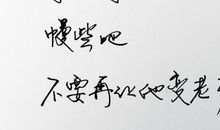 慢些吧
不要再让他变老